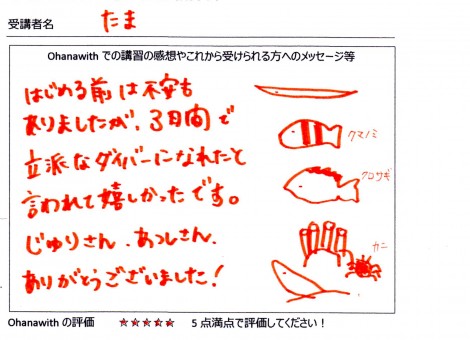 受講者名 たま
Ohanawith での講習の感想やこれから受けられる方へのメッセージ等
はじめる前は不安も
ありましたが、3日間で
立派なダイバーになれたと
言われて嬉しかったです。
じゅりさん、あっしさん、
ありがとうございました!
クマノミ
クロサギ
カニ
Ohanawith の評価 ★★★★★ 5 点満点で評価してください!